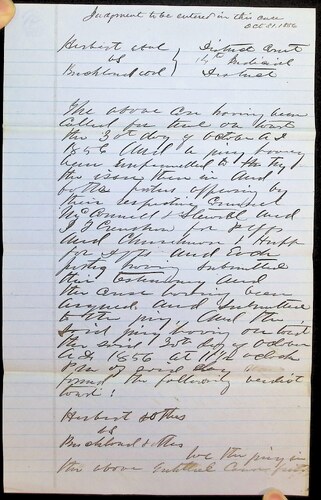 Judgment to be entered in this case
Oct 31, 1856
Herbert et al } District Court
vs } 14th Judicial
Buckland et al } District
The above Case having been
called for trial on
the 30th day of October A D
1856 And a jury having
been Empannelled to try
the issue therein And
both parties appearing by
their respective Counsel
McConnell & Stewart And
for Plffs
And Churchman & Huff
for Defts And Each
party having submitted
their testimony And
the cause having been
argued And Submitted
to the jury, And the
said jury having on
the said 30th day of October
A D 1856 at 11 1/2 oclock
P M of said day
the following verdict
towit:
Herbert & others
vs
Buckland & others
We the jury in
the above Entitled Cause